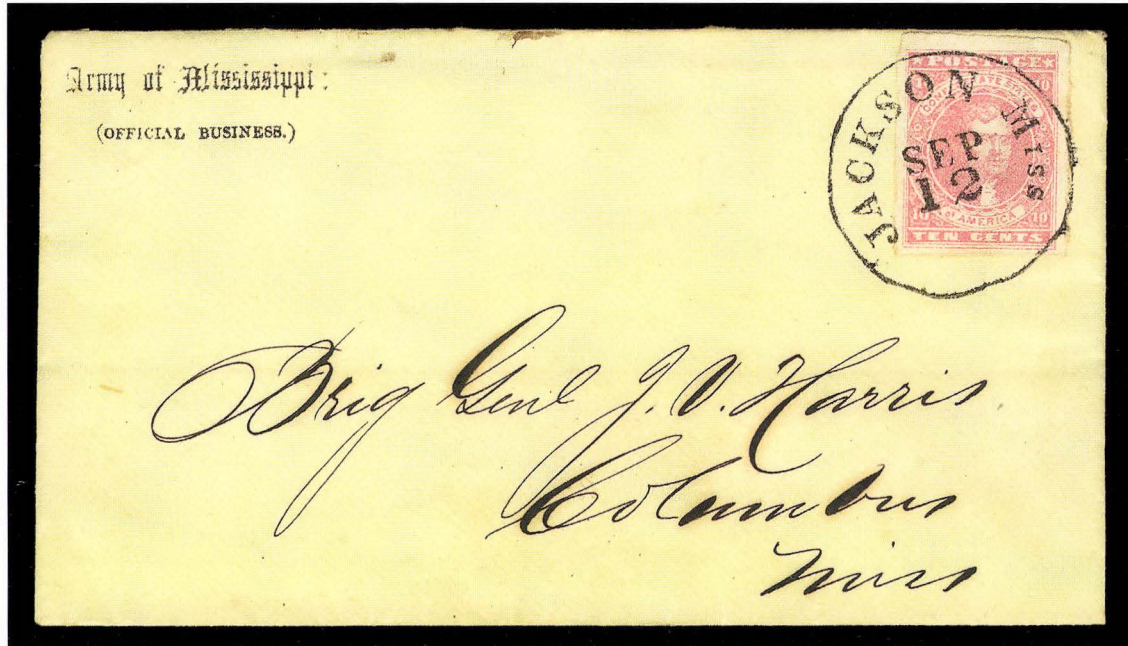 Army of Mississippi:
(OFFICIAL BUSINESS.)
POSTAGE
10 10
OF AMERICA
10 10
TEN CENTS
JACKSON MISS
SEP
12
Brig Genl J. V. Harris
Columbus
Miss